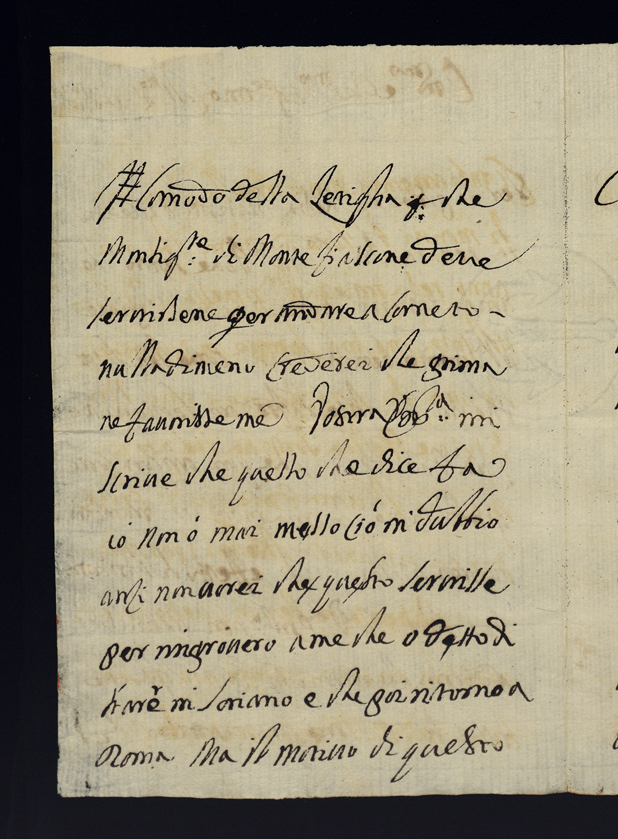 Il Comodo della letigha p: che
Monsig.te di Monte fiascone deve
servirsene per andare a Corneto
nulladimeno Crederei che prima
ne favorisse me Vostra
scrive che quello che dice fa
io non ó mai messo Ció in dubbio
anzi non vorei che questo servisse
per rimprovero a me che o detto di
stare in Soriano e che poi ritorno a
Roma Ma il motivo di questo